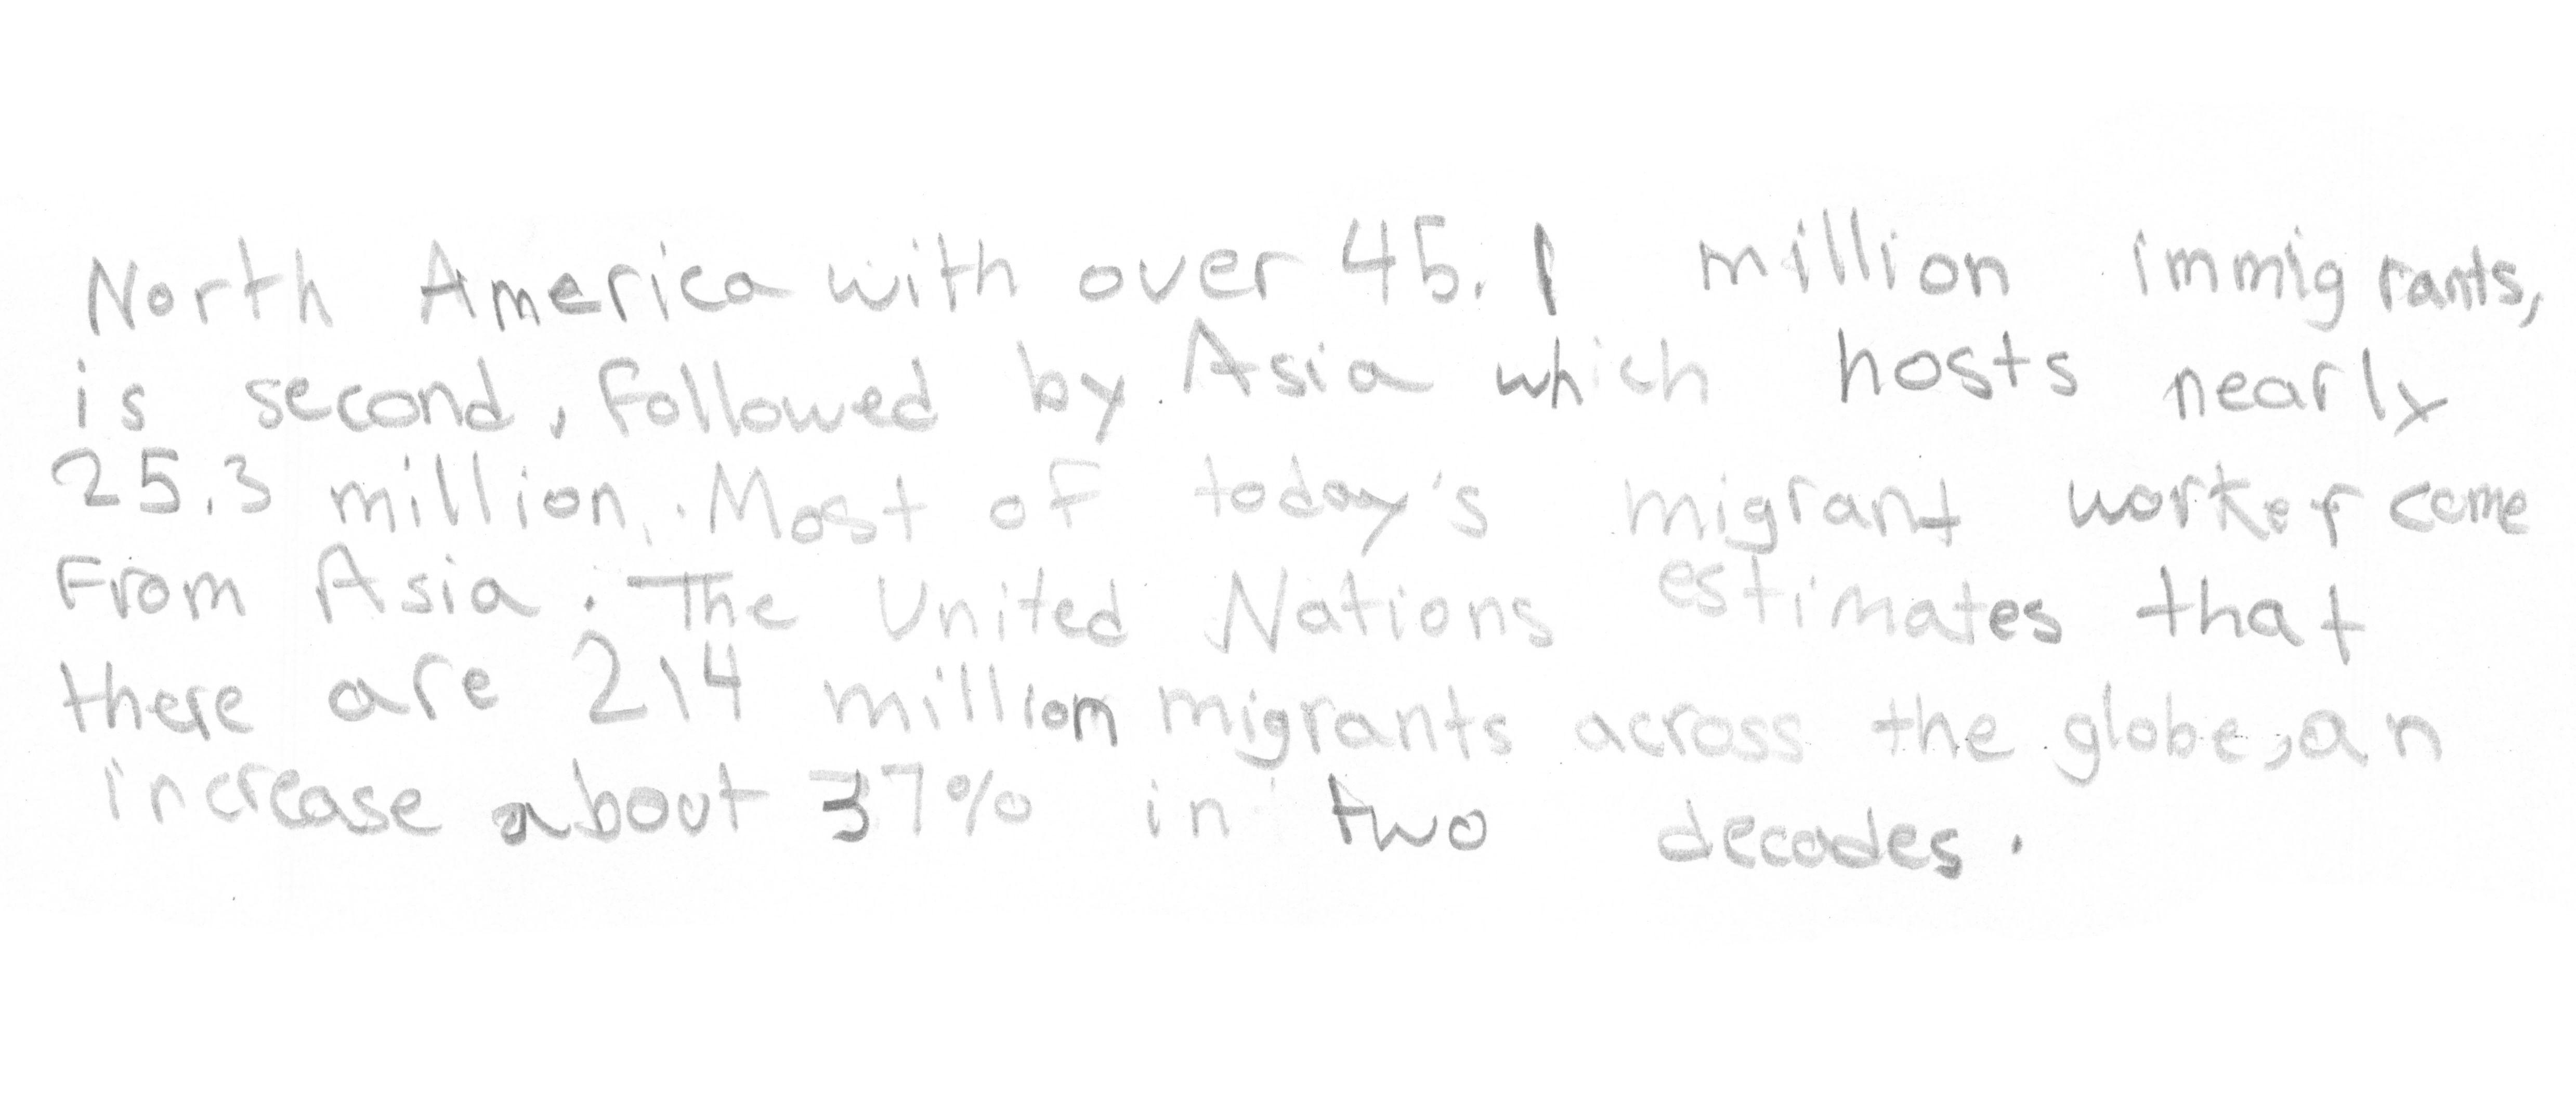 North America with over 45.1 million immigrants,
is second, followed by Asia which hosts nearly
25.3 million. Most of today's migrant worker come
From Asia. The United Nations estimates that
there are 214 million migrants across the globe, an
increase about 37% in two decades.